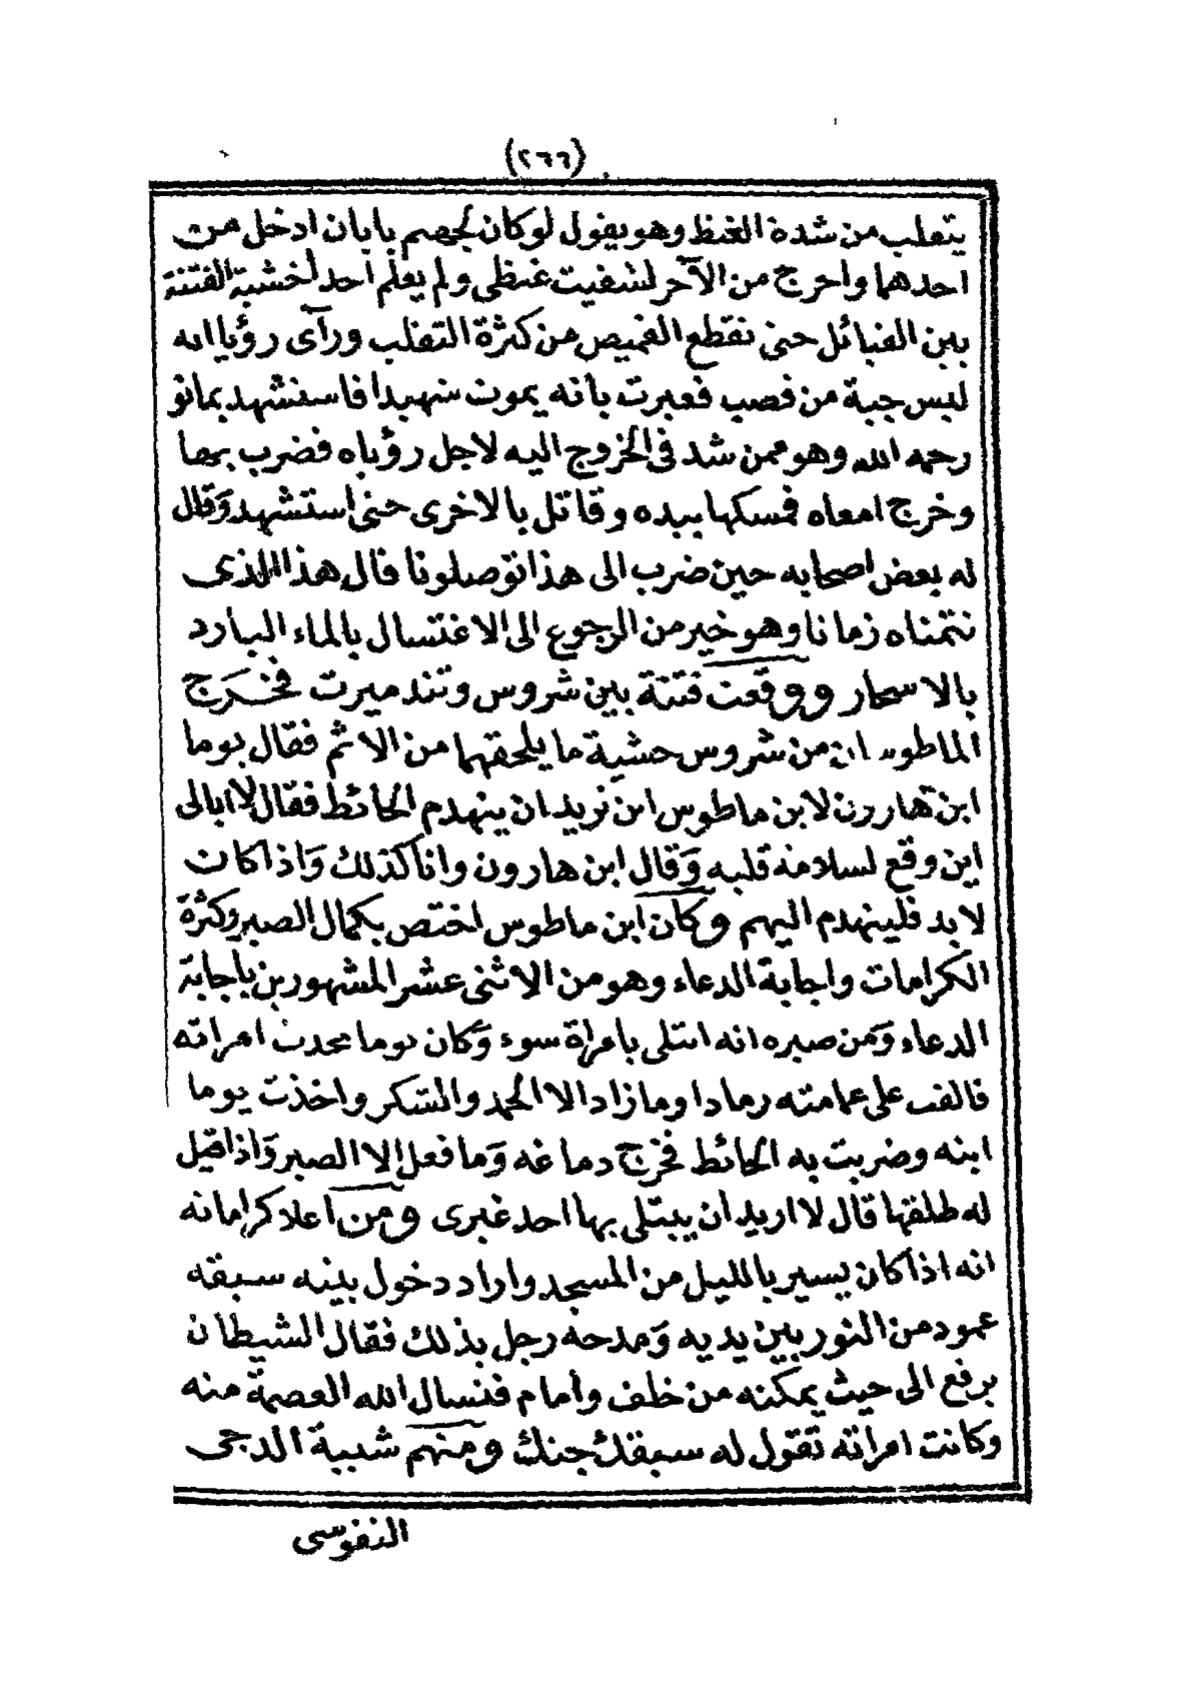 (٢٦٦)
يتقلب من شدة الغيظ وهو يقول لو كان لجهنم بابان ادخل من
احدهما واخرج من الآخر لشفيت غيظى ولم يعلم احد لخشية الفتنة
بين القبائل حتى تقطع القميص من كثرة التقلب ورآى رؤيا انه
لبس جبة من قصب فعبرت بانه يموت شهيدا فاستشهد بمانو
رحمه الله وهو ممن شد فى الخروج اليه لاجل رؤياه فضرب بها
وخرج امعاه فمسكها بيده وقاتل بالاخرى حتى استشهد وقال
له بعض اصحابه حين ضرب الى هذا توصلونا قال هذا الذى
نتمناه زمانا وهو خير من الرجوع الى الاغتسال بالماء البارد
بالاسحار ووقعت فتنة بين شروس وتندميرت فخرج
الماطوسيان من شروس خشية ما يلحقهما من الاثم فقال يوما
ابن هارون لابن ماطوس اين تريد ان ينهدم الحائط فقال لا ابالى
اين وقع لسلامة قلبه وقال ابن هارون وانا كذلك واذا كان
لا بد فلينهدم اليهم وكان ابن ماطوس اختص بكمال الصبر وكثرة
الكرامات واجابة الدعاء وهو من الاثنى عشر المشهورين باجابة
الدعاء ومن صبره انه ابتلى بامراة سوء وكان يوما يحدث امراته
فالقت على عمامته رمادا وما زاد الا الحمد والشكر واخذت يوما
ابنه وضربت به الحائط فخرج دماغه وما فعل الا الصبر واذا قيل
له طلقها قال لا اريد ان يبتلى بها احد غيرى ومن اعلا كراماته
انه اذا كان يسير بالليل من المسجد واراد دخول بيته سبقه
عمود من النور بين يديه ومدحه رجل بذلك فقال الشيطان
يرفع الى حيث يمكنه من خلف وامام فنسال الله العصمة منه
وكانت امراته تقول له سبقك جنك ومنهم شيبة الدجى
النفوسى